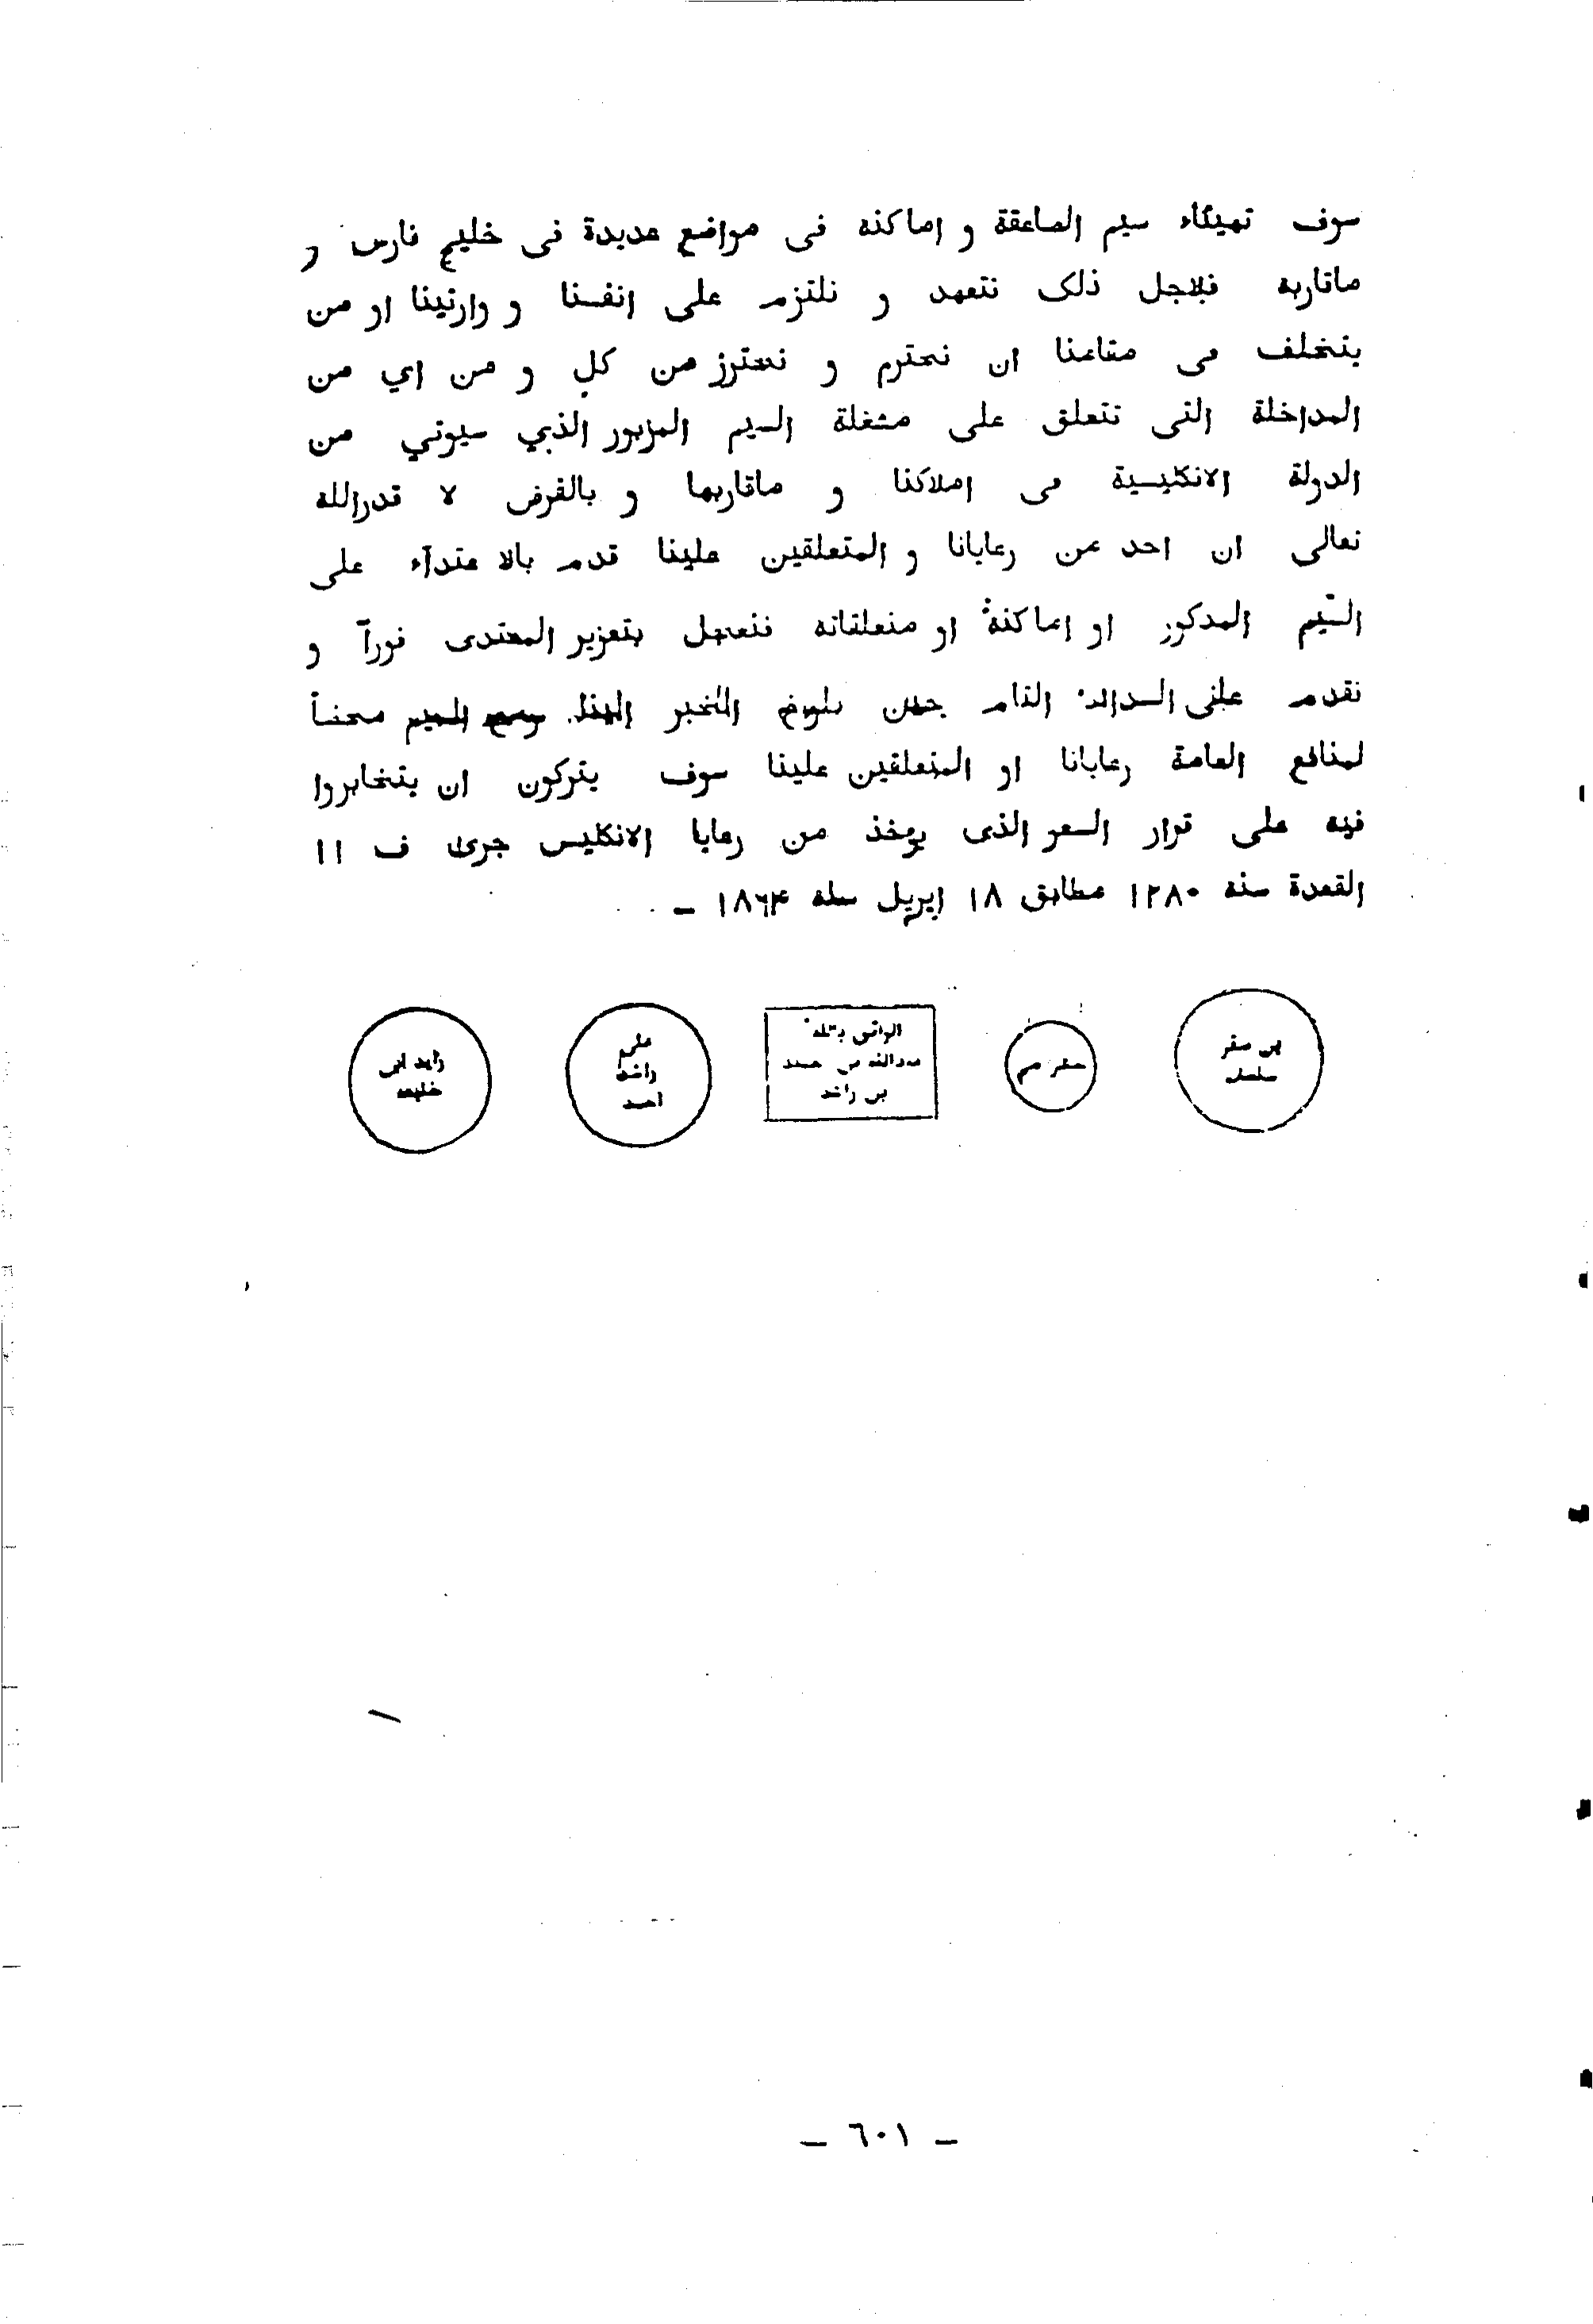 سوف تهيئاء سيم الصاعقة و اماكنه فى مواضع عديدة فى خليج فارس و
ماقاربه فلاجل ذلك نتعهد و نلتزم على انفسنا و وارثينا او من
يتخلف فى مقامنا ان نحترم و نحترز من كل و من اي من
المداخلة التى تتعلق على مشغلة السيم المزبور الذي سيوتي من
الدولة الانكليسية فى املاكنا و ماقاربها و بالفرض لا قدرالله
تعالى ان احد من رعايانا و المتعلقين علينا قدم بالا عتدآء على
السّيم المدكور او اماكنهُ او متعلقاته فنعجل بتعزير المعتدى فوراً و
نقدم على السداد التام حين بلوغ الخبر الينا. السيم محضاً
لمنافع العامة رعايانا او المتعلقين علينا سوف يتركون ان يتخابروا
فيه على قرار السعر الذى يوخذ من رعايا الانكليس جرى ف ١١
القعدة سنه ١٢٨٠ مطابق ١٨ اپريل سنه ١٨٦۴ –
بن صقر
الواثق بالله
عبدالله بن
بن راشد
على
راشد
احمد
زايد ابن
خليفه
– ٦٠١ –